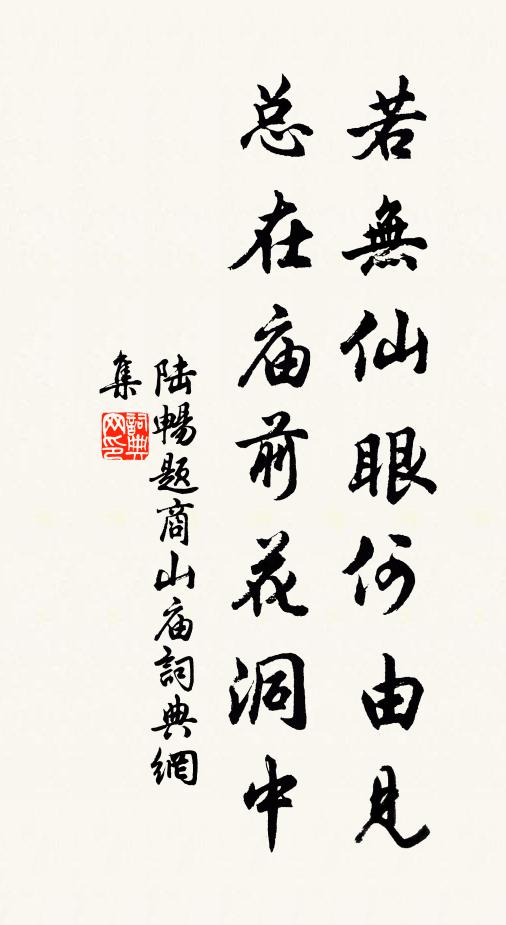 若無仙眼何由見
总在庙前花洞中
陆暢题商山庙詞典網
集
詞典
网印